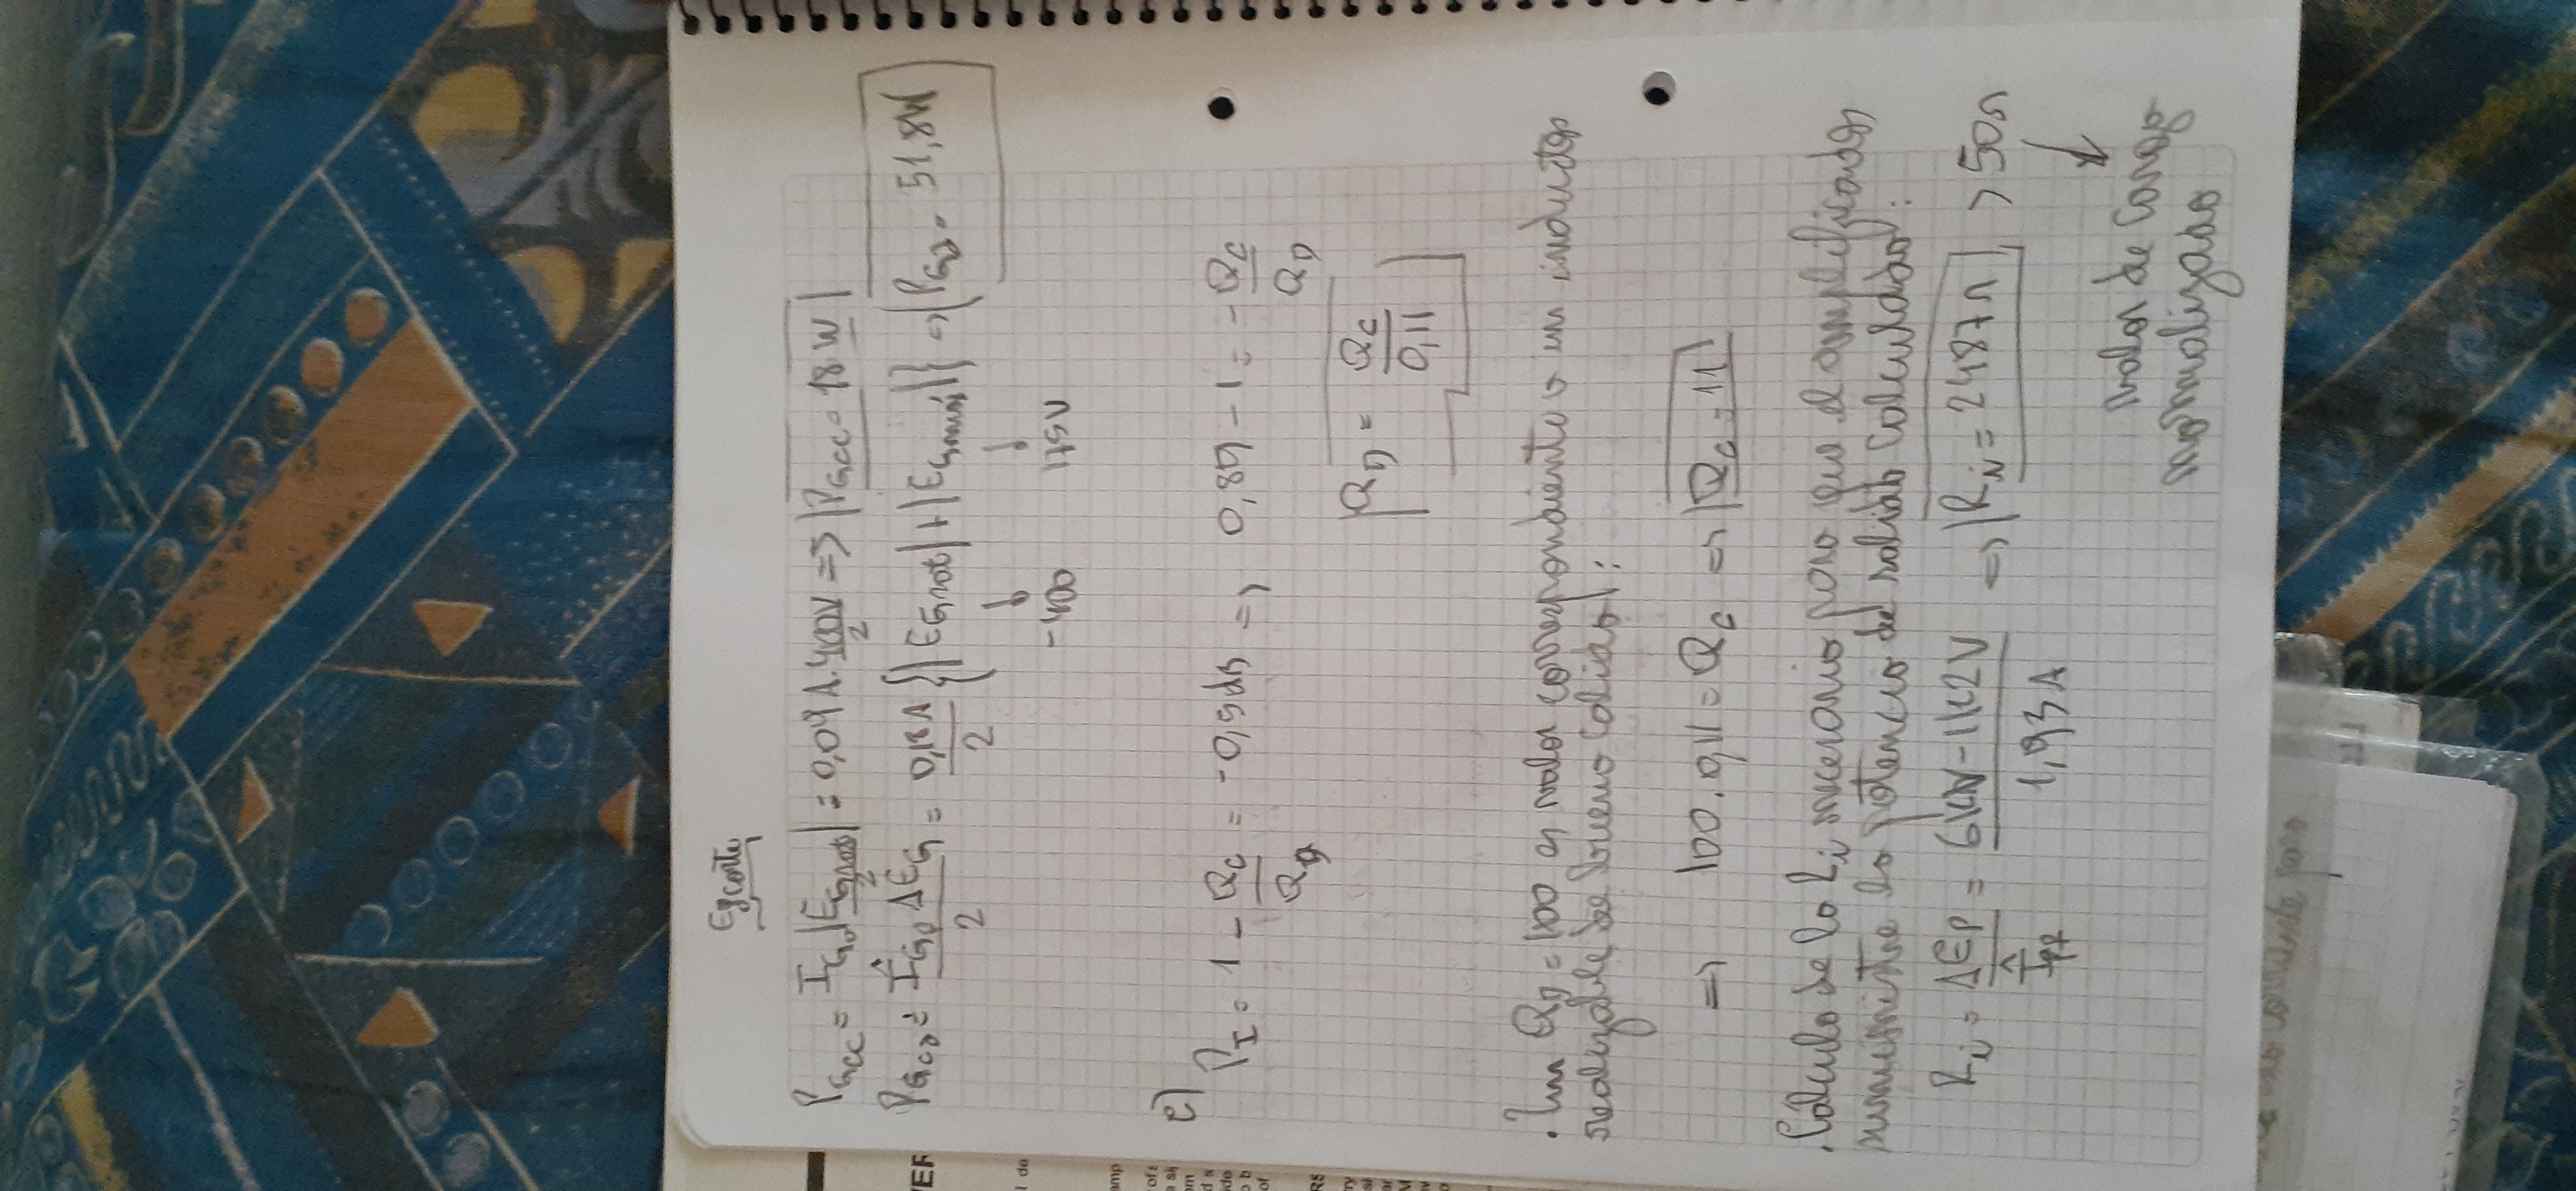 Egcorte
P_Gcc = I_Go |E_Grot|/2 = 0,09A.400V/2 => |P_Gcc = 18 W|
P_Gca = Î_Gp ΔE_G/2 = 0,18A/2 {|E_Grot|+|E_Gmáx|} => P_Ga = 51,8W
-400 175V
e)
P_I = 1 - Q_C/Q_D = -0,5dB => 0,89 - 1 = - Q_C/Q_D
Q_D = Q_C/0,11
. Un Q_D = 100 es valor correspondiente a un inductor
realizable de buena calidad:
=> 100.0,11 = Q_C => |Q_C = 11|
. Cálculo de la Ri necesaria para que el amplificador
suministre la potencia de salida calculada:
Ri = ΔEp/Î_PF = 6KV-1K2V/1,93A => |Ri = 2487Ω| > 50Ω
valor de carga
normalizado
VER
l de
amp
of
RS
corriente para